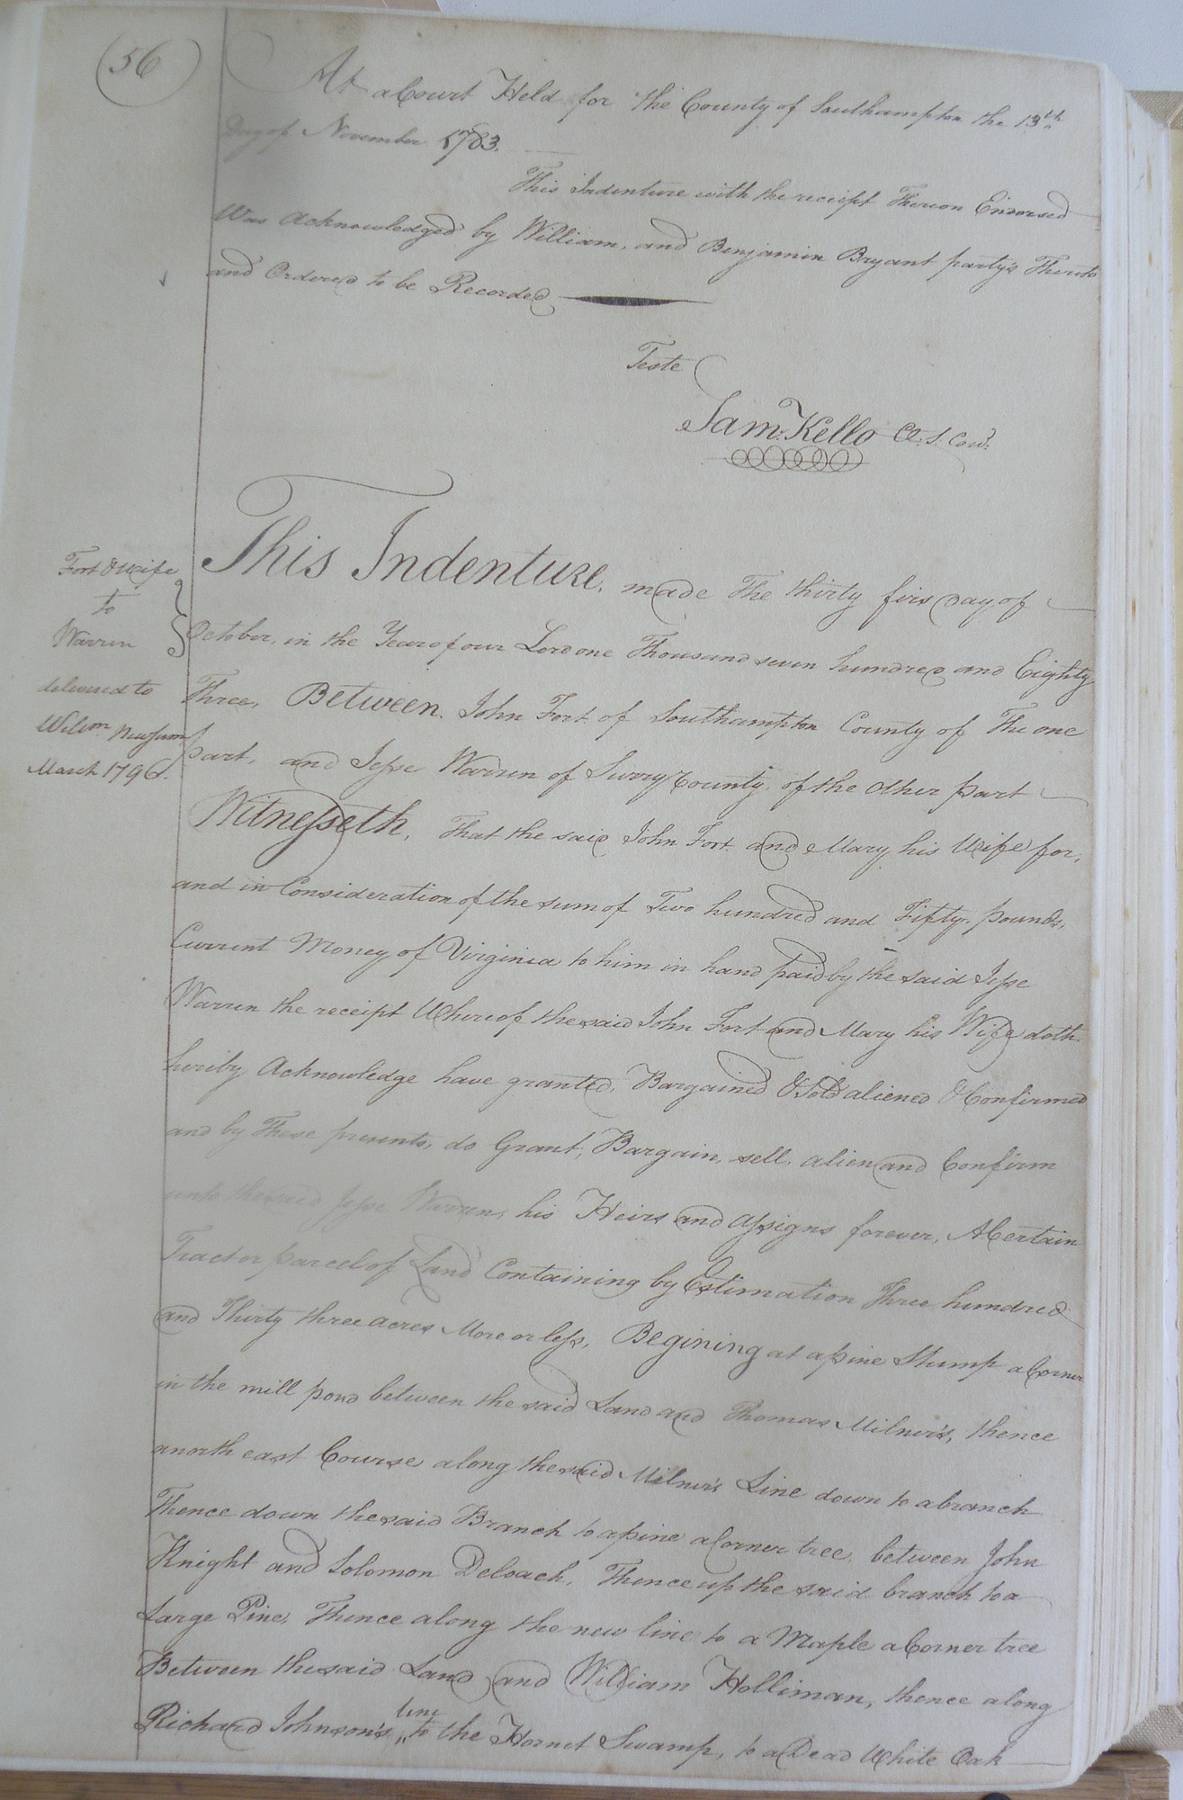 (56)
At a Court Held for the County of Southampton the 13th
Day of November 1783.
This Indenture with the receipt Thereon Endorsed
Was Acknowledged by William, and Benjamin Bryant party's Thereto
and Ordered to be Recorded
Teste
Sam: Kello Cl. S. Cou:
Fort & Wife
to
Warren
delivered to
Wilson Newsum
March 1796.
This Indenture, made The thirty firs day of
October, in the Year of our Lord one Thousand seven hundred and Eighty
Three, Between, John Fort of Southampton County of The one
part, and Jesse Warren of Surry County of the Other part
Witnesseth, That the said John Fort and Mary his Wife for,
and in Consideration of the sum of Two hundred and Fifty pounds,
Current Money of Virginia to him in hand paid by the said Jesse
Warren the receipt Whereof the said John Fort and Mary his Wife doth
hereby Acknowledge have granted, Bargained & Sold aliened & Confirmed
and by These presents, do Grant, Bargain, sell, alien and Confirm
unto the said Jesse Warren, his Heirs and Assigns forever, A Certain
Tract or parcel of Land Containing by Estimation Three hundred
and Thirty three acres More or less, Begining at a pine Stump a Corner
in the mill pond between the said Land and Thomas Milner's, thence
a north east Course along the said Milner's Line down to a branch
Thence down the said Branch to a pine a Corner tree, between John
Knight and Solomon Deloach, Thence up the said branch to a
Large Pine, Thence along the new line to a Maple a Corner tree
Between the said Land and William Holliman, thence along
Richard Johnson's line to the Hornet Swamp, to a Dead White Oak